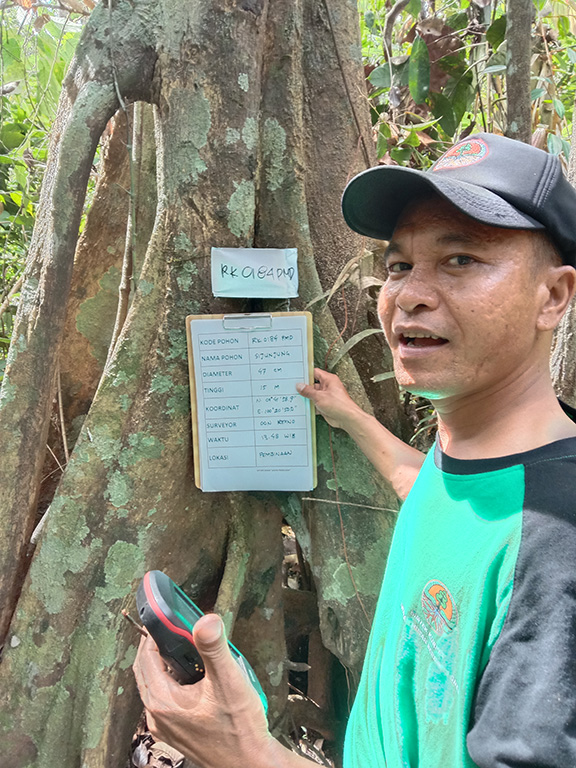 RK 0184 PMD
KODE POHON RK 0184 PMD
NAMA POHON SIJUNJUNG
DIAMETER 47 CM
TINGGI 15 M
KOORDINAT
SURVEYOR
WAKTU 13.50 WIB
LOKASI PEMBINAAN